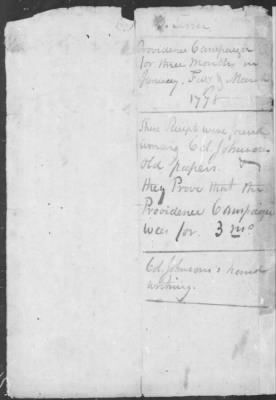 Providence Campaign
for three Months in
January, Feby & March
1778
These Receipts were found
among Col. Johnsons
Old papers &
they Prove that the
Providence Campaign
was for 3 mos
Col. Johnsons hand
writing.